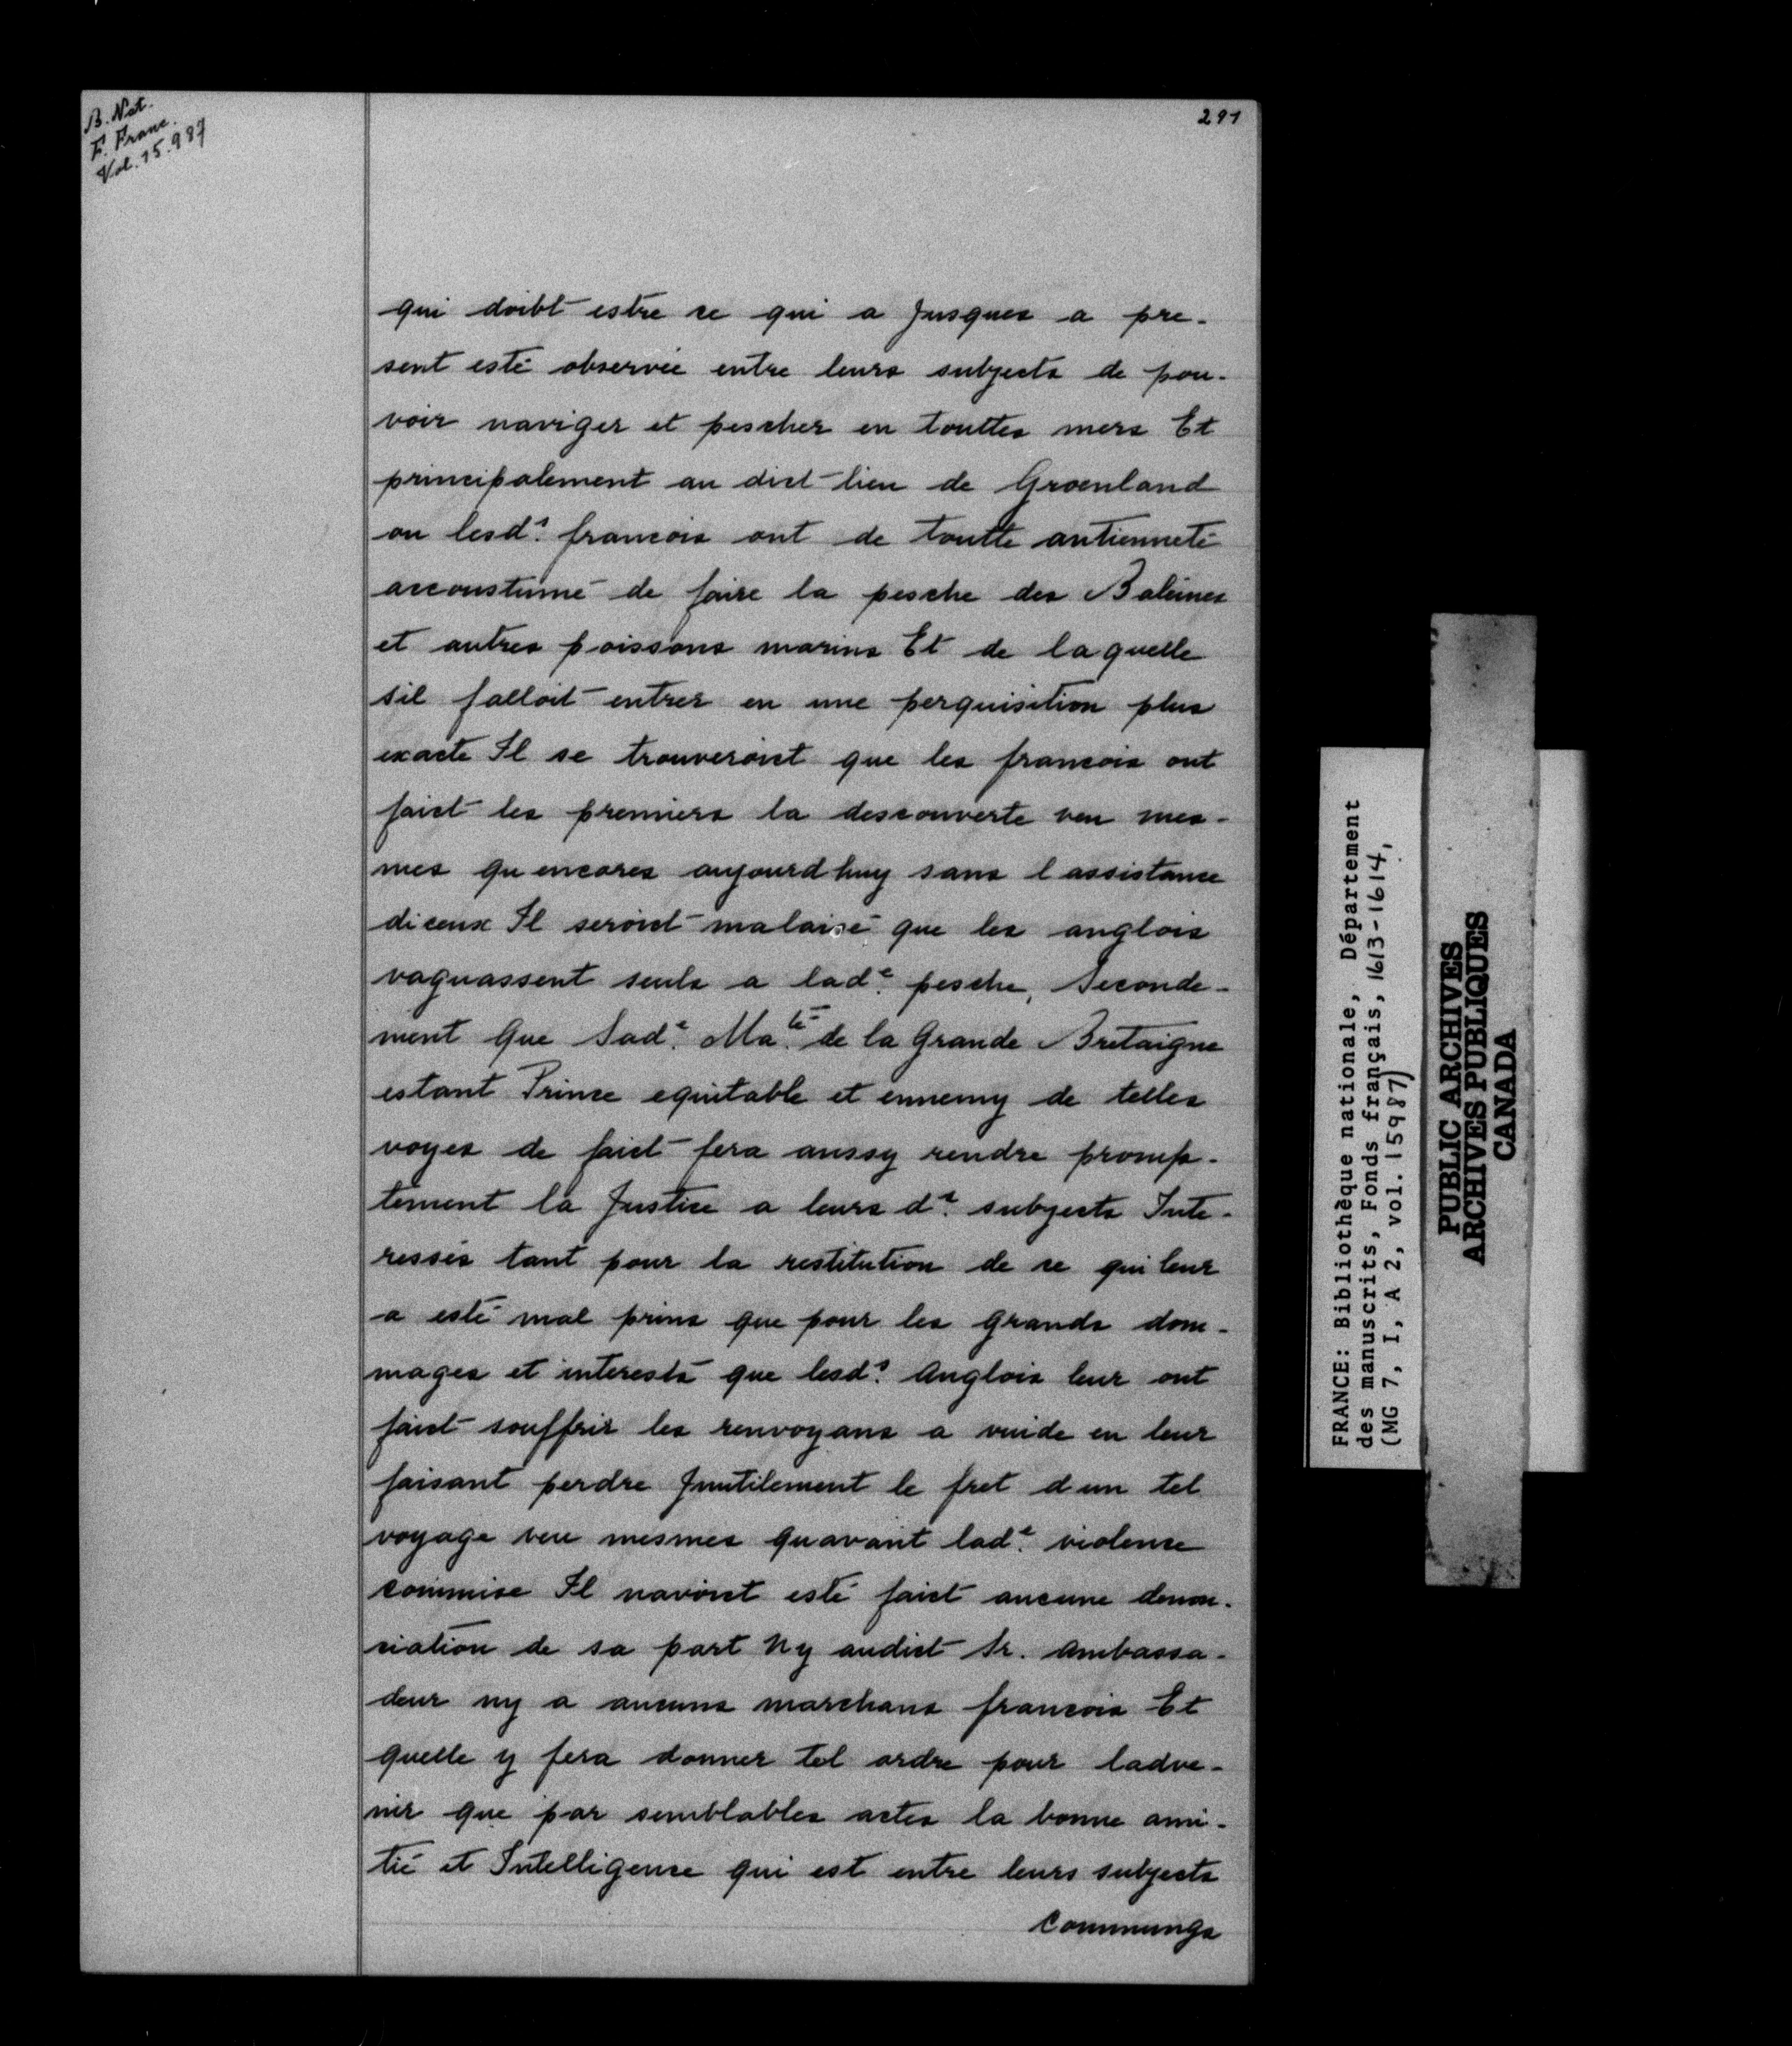 B. Nat.
F. Franc.
Vol. 15.987
291
qui doibt estre ce qui a Jusques a pre-
sent esté observée entre leurs subjects de pou-
voir naviger et pescher en touttes mers Et
principalement au dict lieu de Groenland
ou lesd.s francois ont de toutte antienneté
accoustumé de faire la pesche des Baleines
et autres poissons marins Et de laquelle
sil falloit entrer en une perquisition plus
exacte Il se trouveroict que les francois ont
faict les premiers la descouverte veu mes-
mes qu encores aujourdhuy sans l assistance
diceux Il seroict malaisé que les anglois
vaquassent seuls a lad.e pesche, Seconde-
ment Que Sad.e Ma.té de la Grande Bretaigne
estant Prince equitable et ennemy de telles
voyes de faict fera aussy rendre promp-
tement la Justice a leurs d.s subjects Inte-
ressés tant pour la restitution de ce qui leur
a esté mal prins que pour les grands dom-
mages et interests que lesd.s Anglois leur ont
faict souffrir les renvoyans a vuide en leur
faisant perdre Inutilement le fret d un tel
voyage veu mesmes quavant lad.e violence
commise Il navoict esté faict aucune denon-
ciation de sa part Ny audict Sr. Ambassa-
deur ny a aucuns marchans francois Et
quelle y fera donner tel ordre pour ladve-
nir que par semblables actes la bonne ami-
tié et Intelligence qui est entre leurs subjects
communs
FRANCE: Bibliothèque nationale, Département
des manuscrits, Fonds français, 1613-1614,
(MG 7, I, A 2, vol. 15987)
PUBLIC ARCHIVES
ARCHIVES PUBLIQUES
CANADA